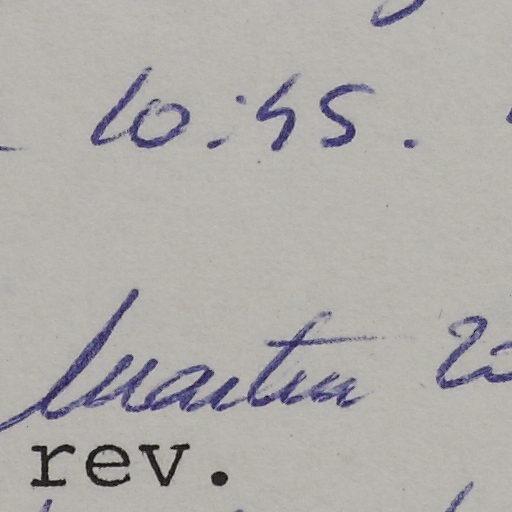 10:45.
Martin
rev.